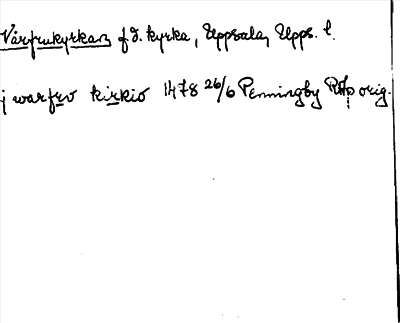 Vårfrukyrkan, f.d. kyrka, Uppsala, Upps. l.
j warfrv kirkio 1478 26/6 Penningby RAp orig.